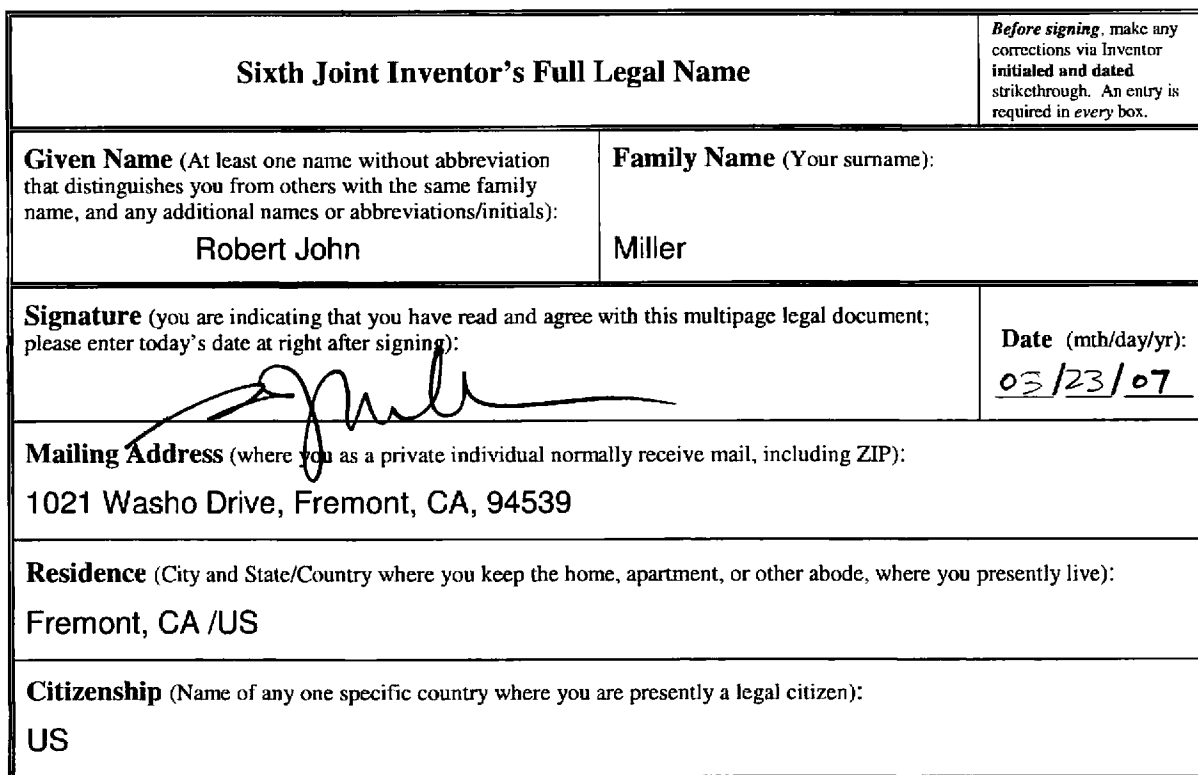 Sixth Joint Inventor's Full Legal Name
Before signing, make any
corrections via Inventor
initialed and dated
strikethrough. An entry is
required in every box.
Given Name (At least one name without abbreviation
that distinguishes you from others with the same family
name, and any additional names or abbreviations/initials):
Robert John
Family Name (Your surname):
Miller
Signature (you are indicating that you have read and agree with this multipage legal document;
please enter today's date at right after signing):
Date (mth/day/yr):
03/23/07
Mailing Address (where you as a private individual normally receive mail, including ZIP):
1021 Washo Drive, Fremont, CA, 94539
Residence (City and State/Country where you keep the home, apartment, or other abode, where you presently live):
Fremont, CA /US
Citizenship (Name of any one specific country where you are presently a legal citizen):
US